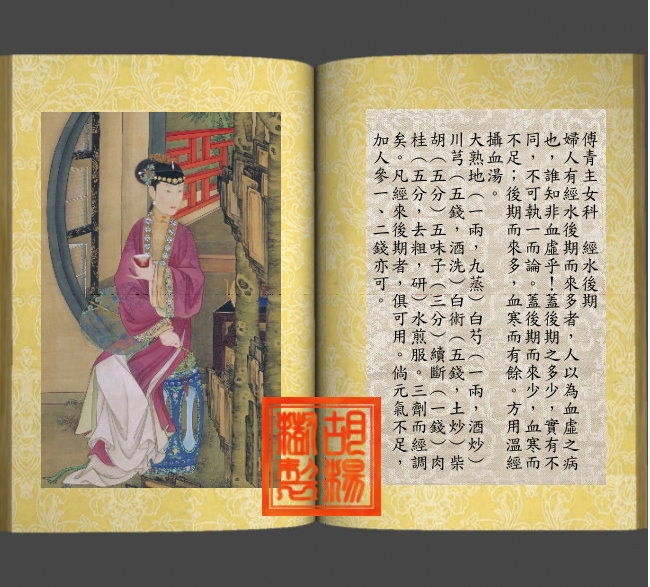 傅青主女科　經水後期
婦人有經水後期而來多者，人以為血虛之病
也，誰知非血虛乎！蓋後期之多少，實有不
同，不可執一而論。蓋後期而來少，血寒而
不足；後期而來多，血寒而有餘。方用溫經
攝血湯。
大熟地（一兩，九蒸）白芍（一兩，酒炒）
川芎（五錢，酒洗）白術（五錢，土炒）柴
胡（五分）五味子（三分）續斷（一錢）肉
桂（五分，去粗，研）水煎服。三劑而經調
矣。凡經來後期者，俱可用。倘元氣不足，
加人參一、二錢亦可。
胡楊
製